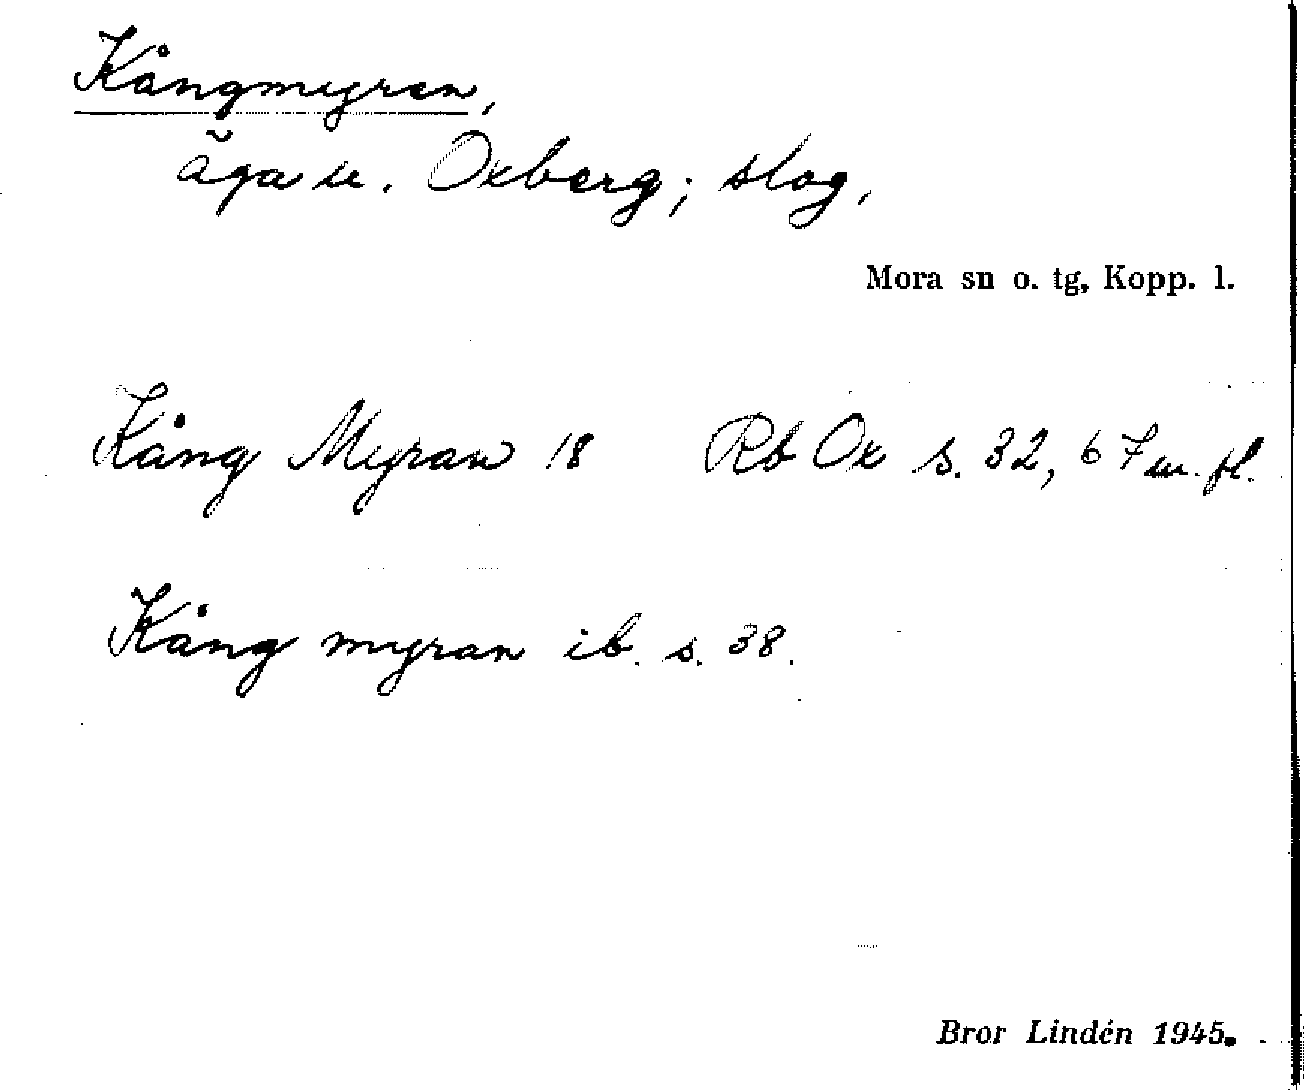 Kångmyren,
äga u. Oxberg; slog.
Mora sn o. tg, Kopp. l.
Kång Myran 18 Rb Ox s. 32, 67 m. fl.
Kång myran ib. s. 38.
Bror Lindén 1945.